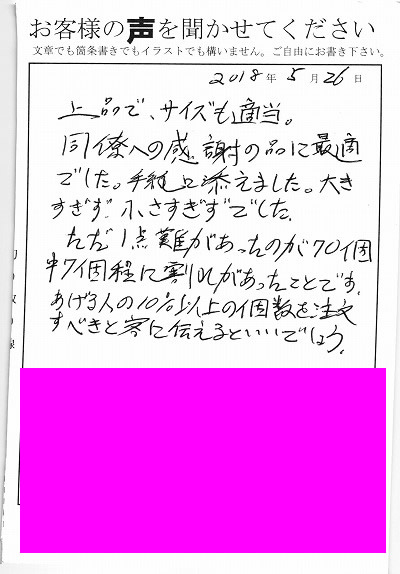 お客様の声を聞かせてください
文章でも箇条書きでもイラストでも構いません。ご自由にお書き下さい。
2018年 5月 26日
上品で、サイズも適当。
同僚への感謝の品に最適
でした。手紙も添えました。大き
すぎず 小さすぎずでした。
ただ1点難があったのが70個
中7個程に割れがあったことです。
あげる人の10%以上の個数を注文
すべきと客に伝えるといいでしょう。